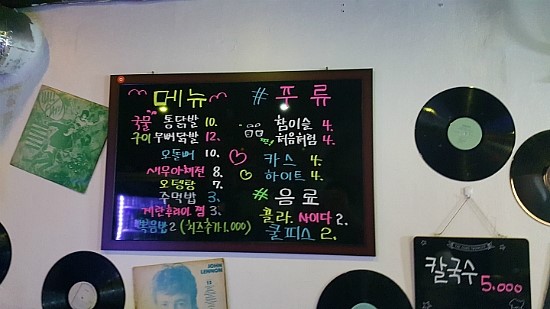 메뉴
국물 통닭발 10.
구이 무뼈닭발 12.
오돌뼈 10.
새우아채전 8.
오뎅탕 7.
주먹밥 3.
계란후라이. 찜 3.
볶음밥 2 (치즈추가 1,000)
# 주류
참이슬 4.
처음처럼 4.
카스 4.
하이트 4.
# 음료
콜라. 사이다 2.
쿨피스 2.
칼국수
5,000
JOHN
LENNON